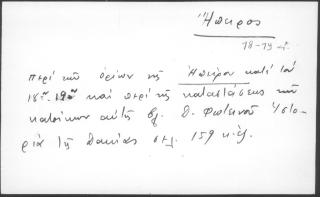 Ἤπειρος
18-19 αἰ.
περὶ τῶν ὁρίων τῆς Ἠπείρου κατὰ τὸν
18ον-19ον καὶ περὶ τῆς καταστάσεως τῶν
κατοίκων αὐτῆς βλ. Δ. Φωτεινοῦ Ἱστο-
ρία τῆς Δακίας σελ. 159 κ.ἑξ.